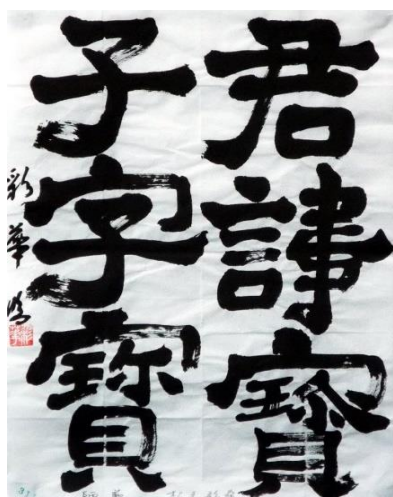 君諱寶
子字寶
彩華